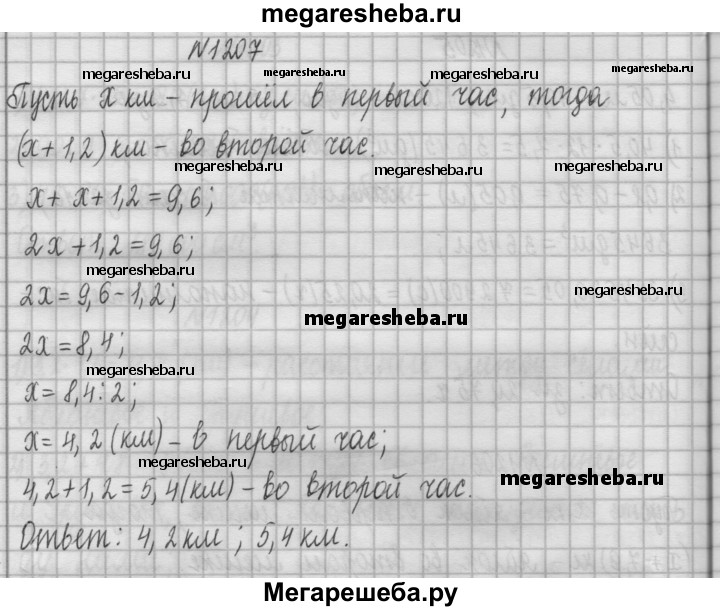 megaresheba.ru
N1207
megaresheba.ru megaresheba.ru megaresheba.ru megaresheba.ru
Пусть x км - прошёл в первый час, тогда
(x+1,2) км - во второй час.
megaresheba.ru megaresheba.ru megaresheba.ru
x + x + 1,2 = 9,6;
2x + 1,2 = 9,6;
megaresheba.ru
2x = 9,6 - 1,2;
megaresheba.ru
megaresheba.ru
2x = 8,4;
megaresheba.ru
x = 8,4 : 2;
x = 4,2 (км) - в первый час;
megaresheba.ru
4,2 + 1,2 = 5,4 (км) - во второй час.
megaresheba.ru
Ответ: 4,2 км ; 5,4 км.
Мегарешеба.ру